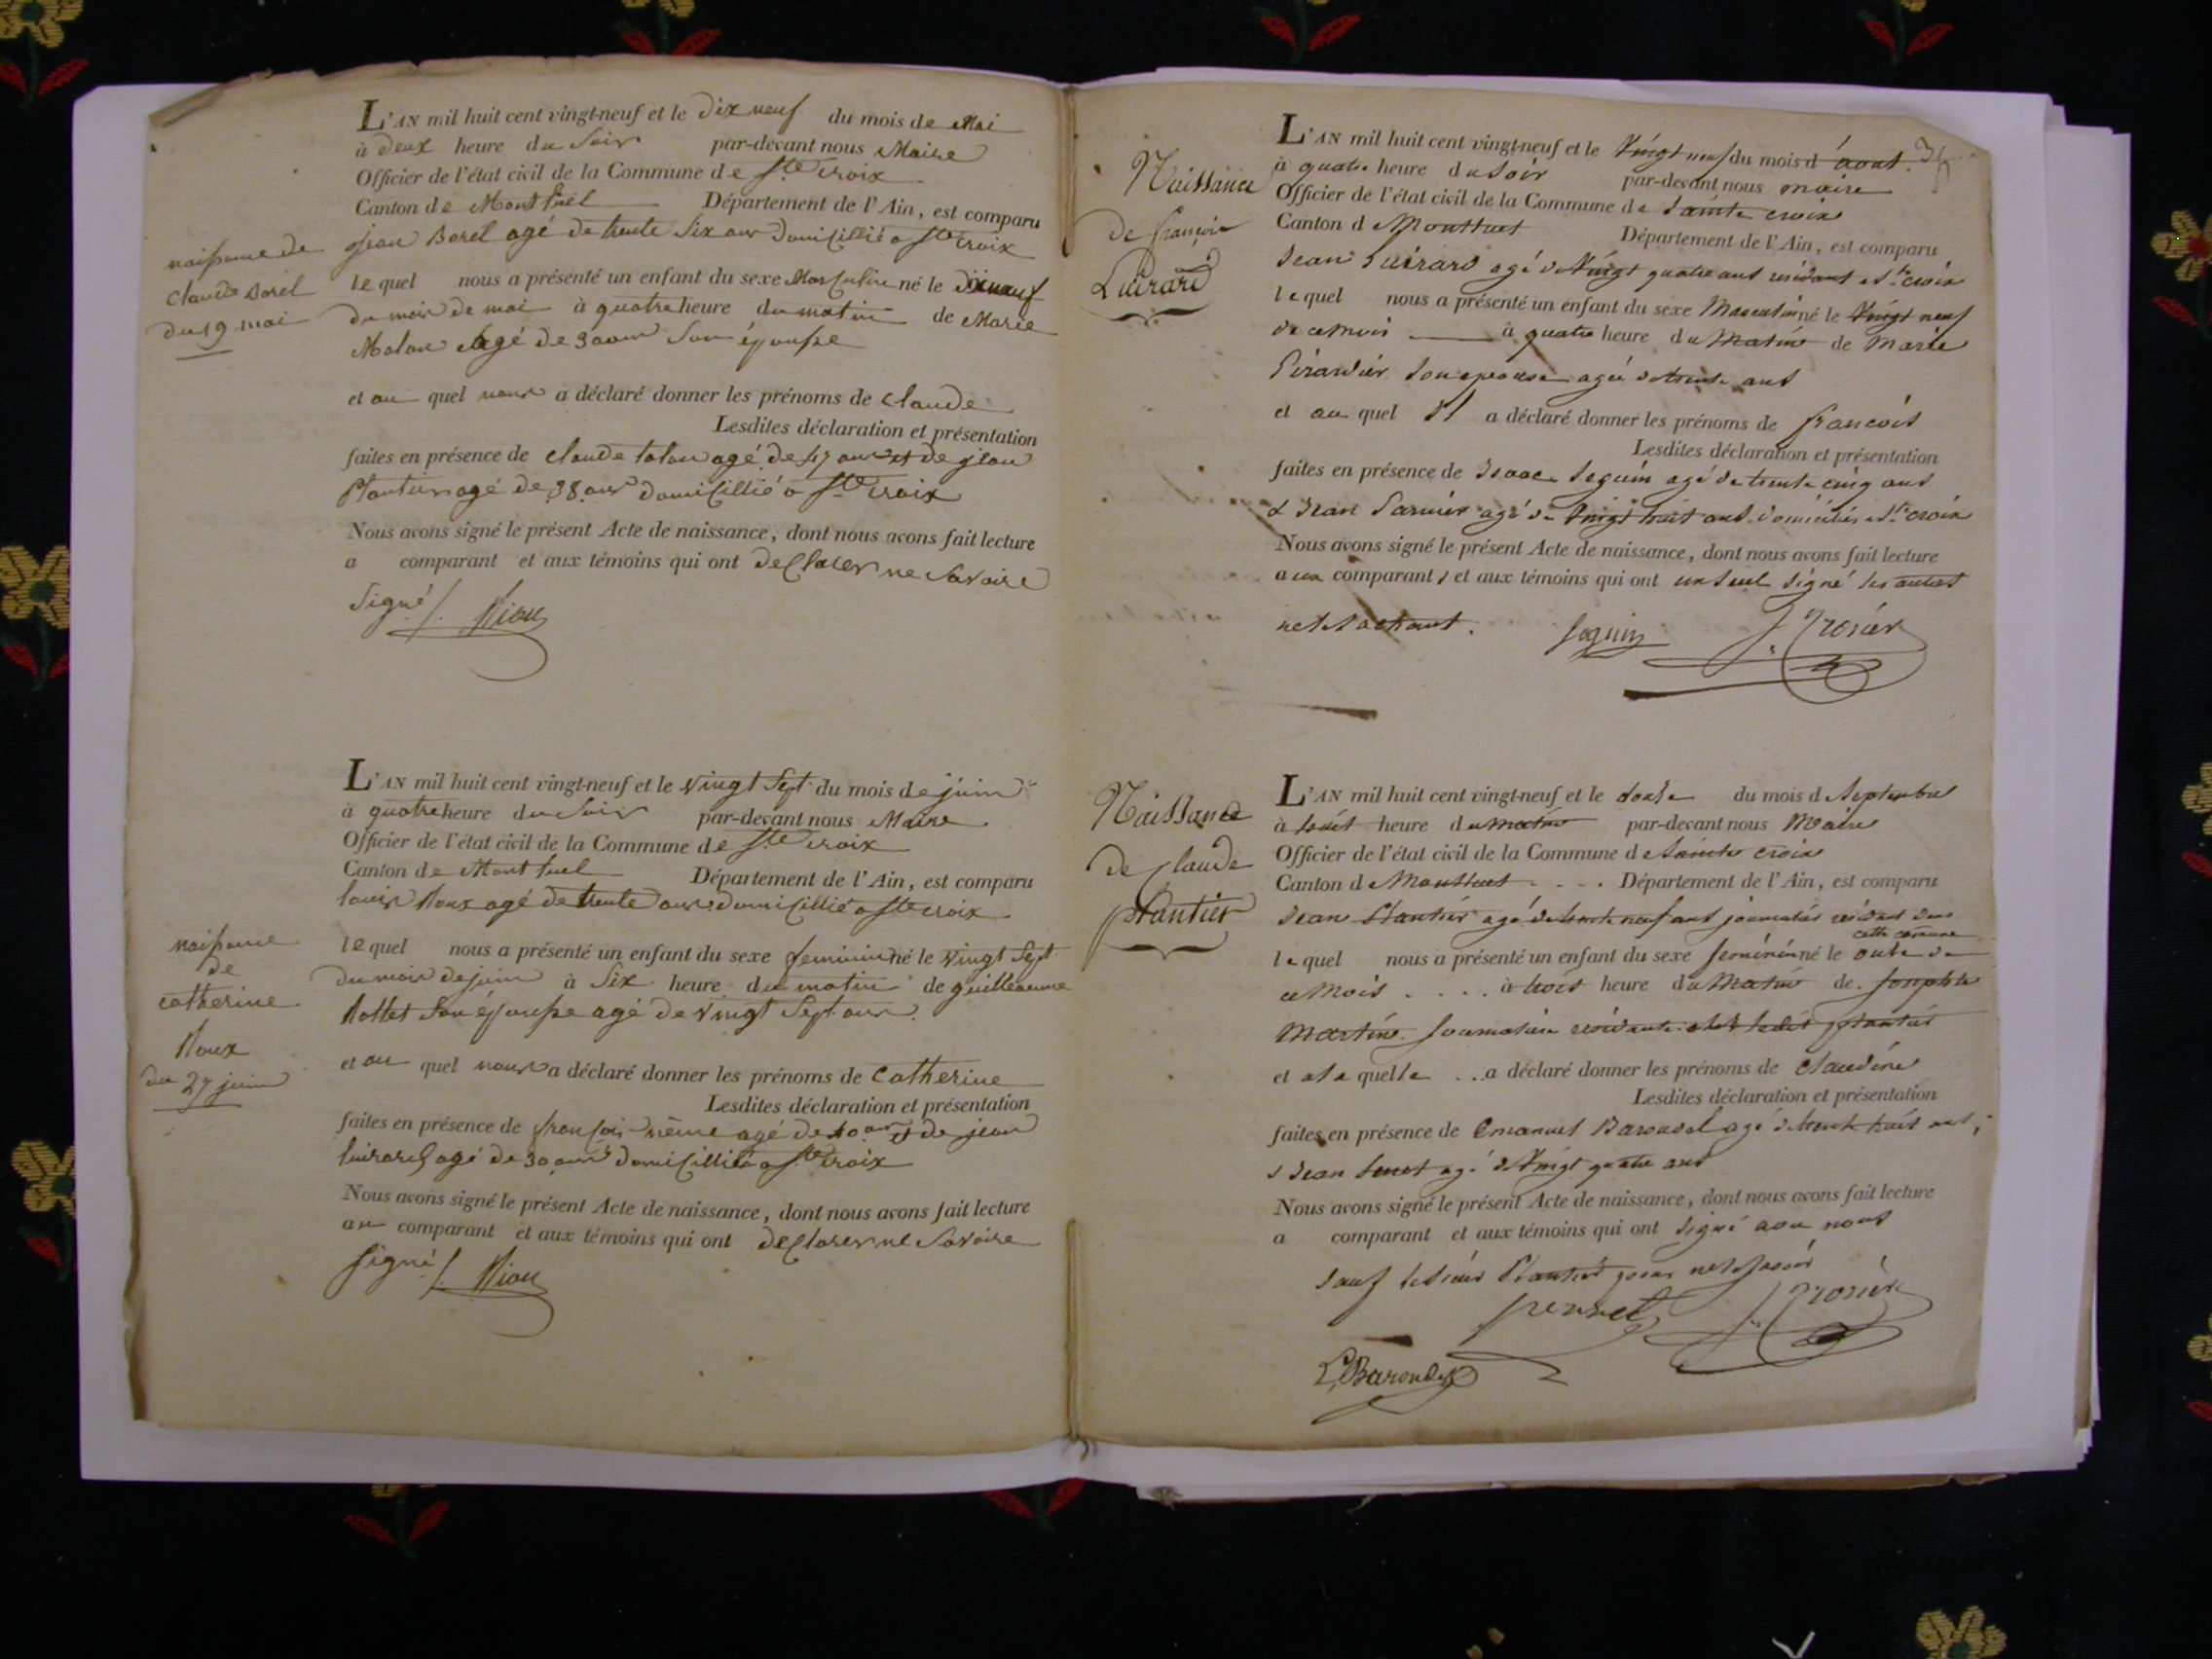 naissance de
Claude Borel
du 19 mai
L'AN mil huit cent vingt-neuf et le dix neuf du mois de Mai
à deux heure du Soir par-devant nous Maire
Officier de l'état civil de la Commune de Ste croix
Canton de Montluel Département de l'Ain, est comparu
jean Borel agé de trente Six ans domicillié a Ste croix
le quel nous a présenté un enfant du sexe Masculin né le dixneuf
du mois de mai à quatre heure du matin de Marie
agé de 30 ans Son épouse
et au quel nous a déclaré donner les prénoms de Claude
Lesdites déclaration et présentation
faites en présence de claude agé de 47 ans et de jean
agé de 38 ans domicillié a Ste croix
Nous avons signé le présent Acte de naissance, dont nous avons fait lecture
a comparant et aux témoins qui ont declarer ne Savoire
Signé
naissance
de
catherine
Roux
du 27 juin
L'AN mil huit cent vingt-neuf et le vingt Sept du mois de juin
à quatre heure du Soir par-devant nous Maire
Officier de l'état civil de la Commune de Ste croix
Canton de Montluel Département de l'Ain, est comparu
louis Roux agé de trente ans domicillié a Ste croix
le quel nous a présenté un enfant du sexe feminin né le vingt Sept
du mois de juin à Six heure du matin de guilleaume
Rollet Son épouse agé de vingt Sept ans
et au quel nous a déclaré donner les prénoms de Catherine
Lesdites déclaration et présentation
faites en présence de françois agé de 40 ans et de jean
agé de 30 ans domicillié a Ste croix
Nous avons signé le présent Acte de naissance, dont nous avons fait lecture
au comparant et aux témoins qui ont declarer ne Savoire
signé
Naissance
de françois
Luirard
L'AN mil huit cent vingt-neuf et le Vingt neuf du mois d'aout
à quatre heure du Soir par-devant nous maire
Officier de l'état civil de la Commune de Sainte croix
Canton d Montluel Département de l'Ain, est comparu
Jean Luirard agé de Vingt quatre ans residant a Ste croix
le quel nous a présenté un enfant du sexe Masculin né le Vingt neuf
de ce mois à quatre heure du Matin de Marie
son epouse agée de trente ans
et au quel il a déclaré donner les prénoms de françois
Lesdites déclaration et présentation
faites en présence de Isaac Seguin agé de trente cinq ans
& Jean agé de Vingt huit ans domiciliés a Ste croix
Nous avons signé le présent Acte de naissance, dont nous avons fait lecture
aux comparants et aux témoins qui ont un seul signé les autres
ne le sachant.
Seguin
Naissance
de Claude
plantier
L'AN mil huit cent vingt-neuf et le douze du mois d Septembre
à huit heure du matin par-devant nous Maire
Officier de l'état civil de la Commune d Sainte croix
Canton d Montluel Département de l'Ain, est comparu
Jean Plantier agé de trente neuf ans journalier residant dans
cette comune
le quel nous a présenté un enfant du sexe feminin né le onze de
ce Mois à trois heure du Matin de Josephte
Martin Journaliere residante chez ledit plantier
et a la quelle a déclaré donner les prénoms de Claudine
Lesdites déclaration et présentation
faites en présence de Emanuel Baroudel agé de trente huit ans,
& Jean agé de Vingt quatre ans
Nous avons signé le présent Acte de naissance, dont nous avons fait lecture
a comparant et aux témoins qui ont signé avec nous
sauf le sieur Plantier pour ne le savoir